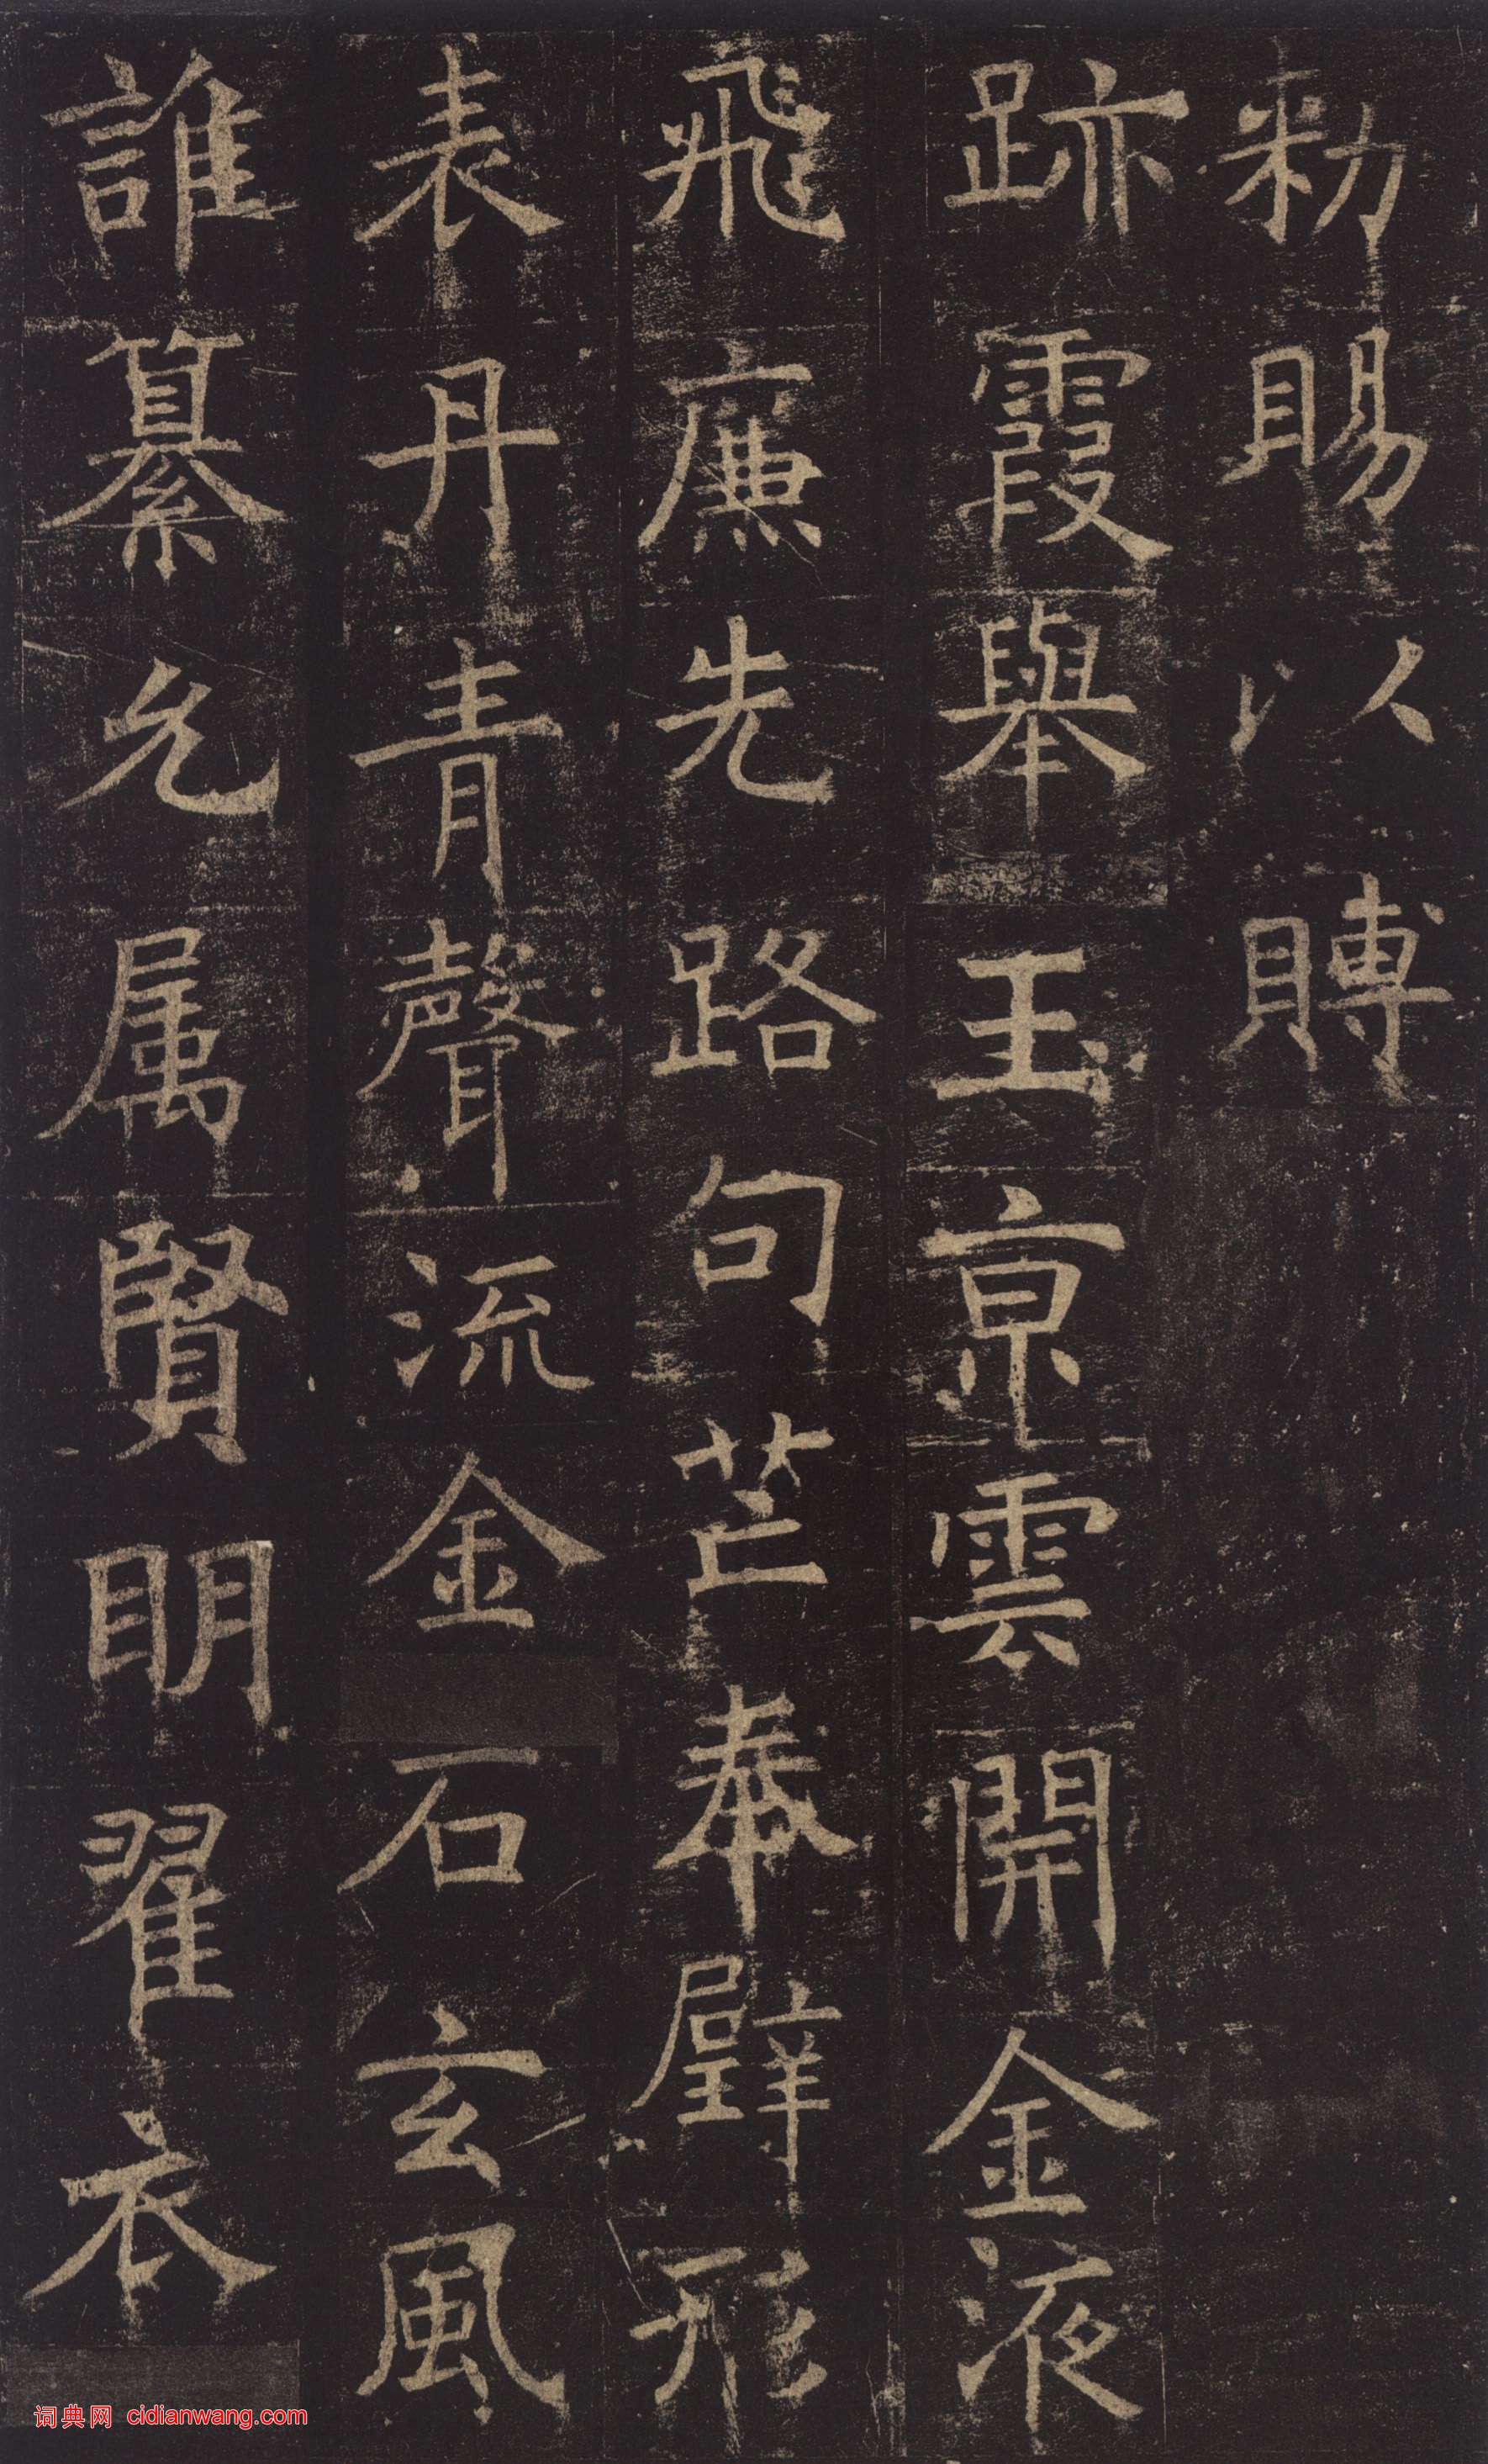 勑賜以賻
跡霞舉玉京雲開金液
飛廉先路句芒奉璧形
表丹青聲流金石玄風
誰纂允属賢明翟衣
词典网 cidianwang.com